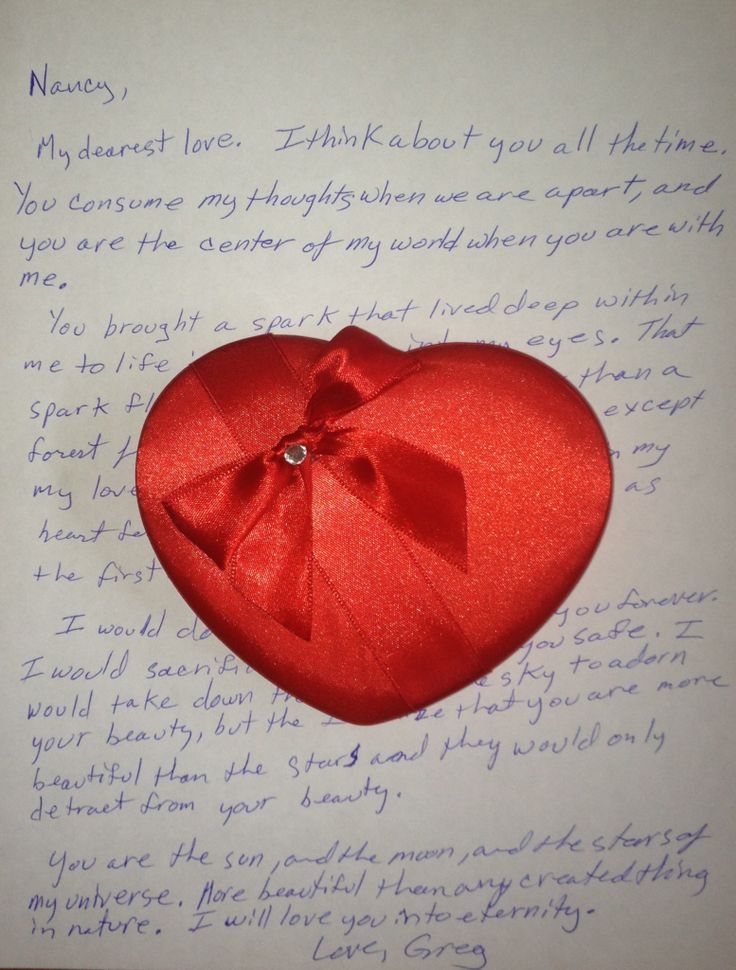 Nancy,
My dearest love. I think about you all the time.
You consume my thoughts when we are apart, and
you are the center of my world when you are with
me.
You brought a spark that lived deep within
me to life my eyes. That
spark than a
forest except
my love my
heart as
the first
I would you forever.
I would you safe. I
would take down sky to adorn
your beauty, but the that you are more
beautiful than the stars and they would only
detract from your beauty.
You are the sun, and the moon, and the stars of
my universe. More beautiful than any created thing
in nature. I will love you into eternity.
Love, Greg